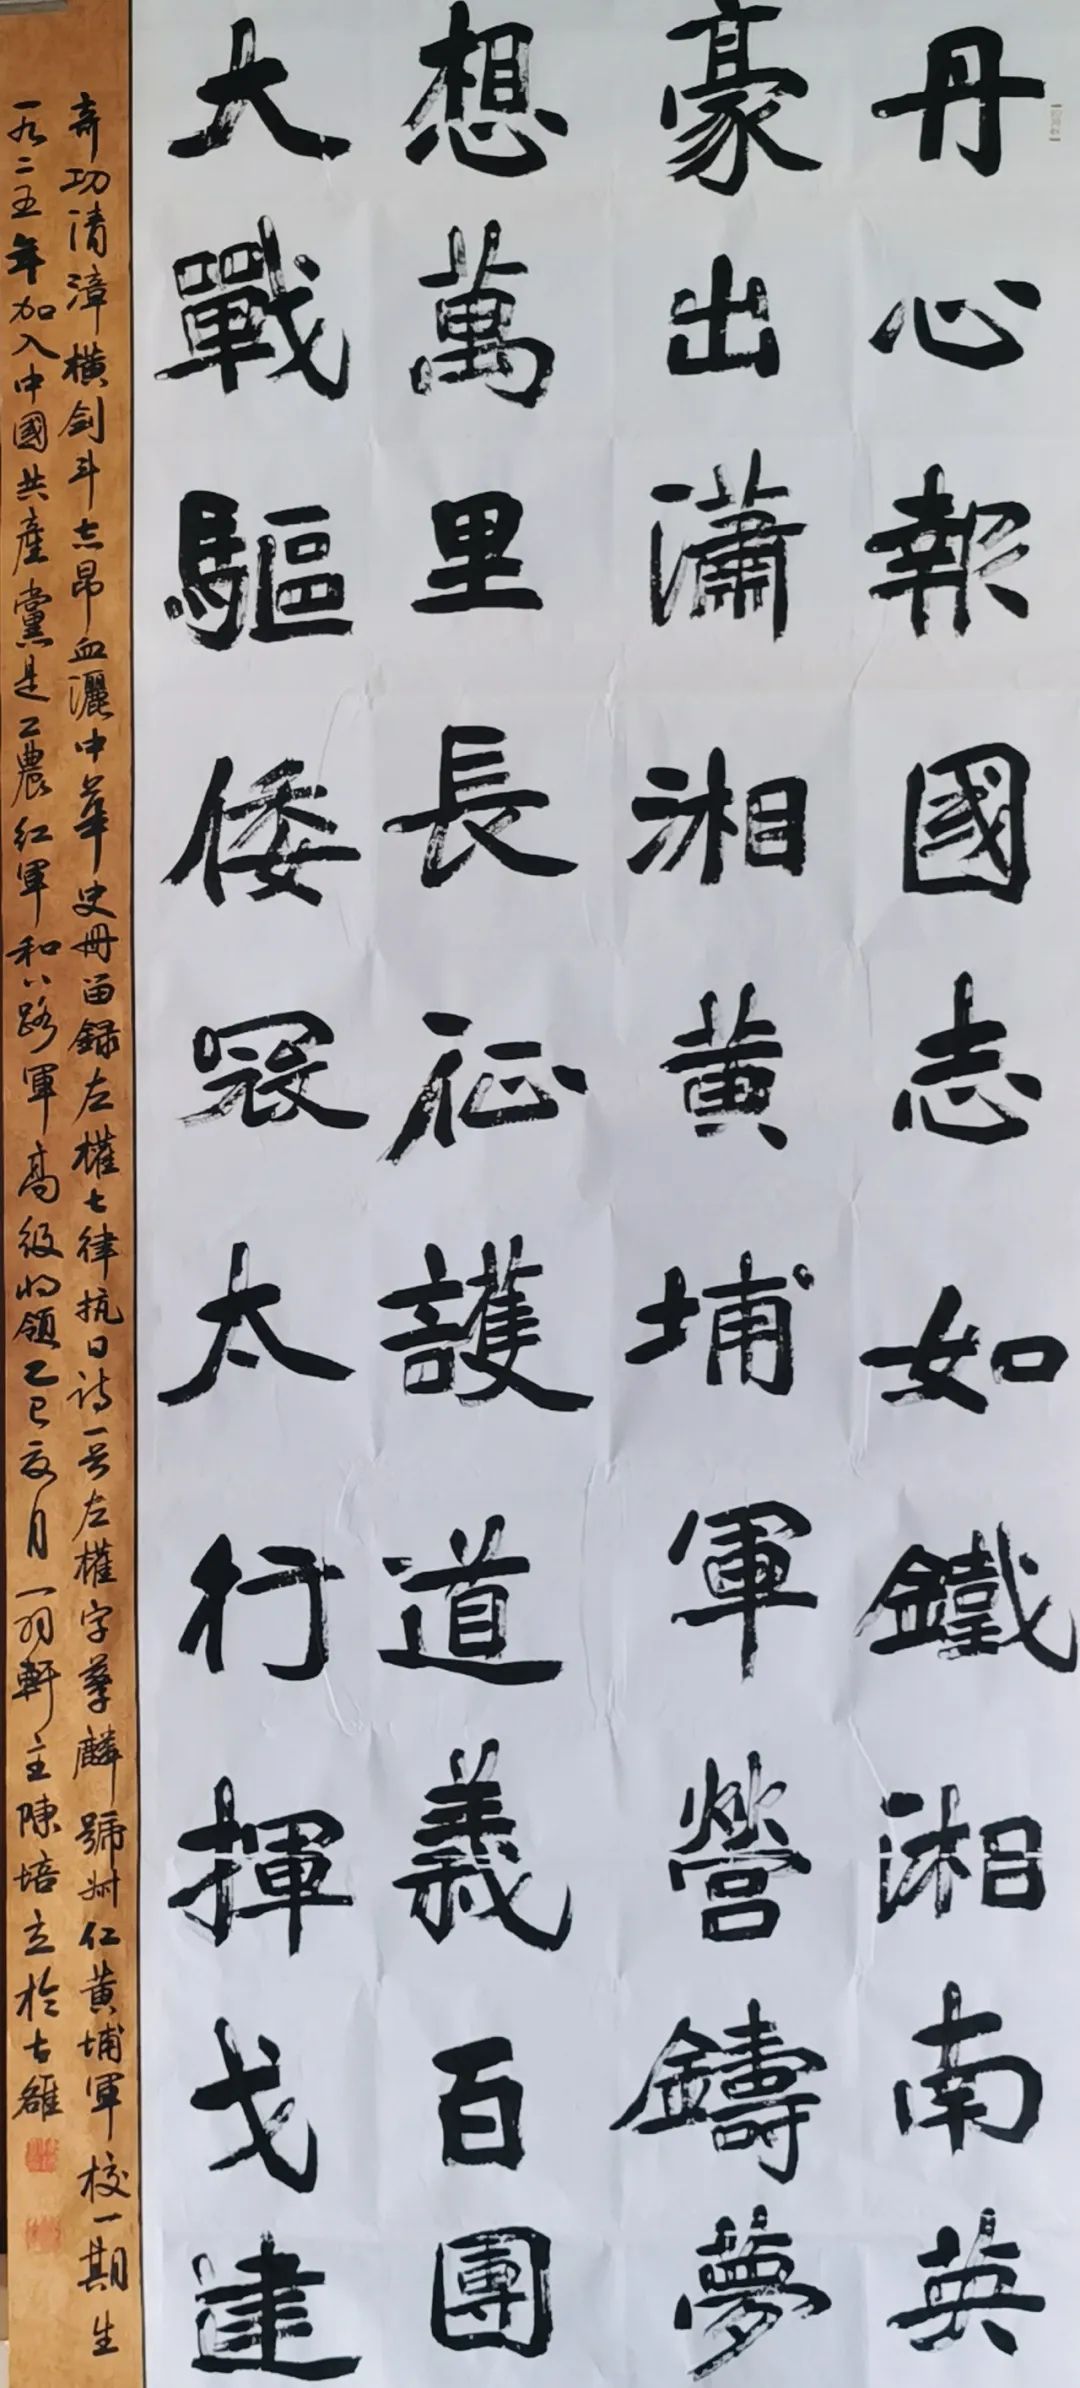 丹心報國志如鐵湘南英
豪出瀟湘黃埔軍營鑄夢
想萬里長征護道義百團
大戰驅倭寇太行揮戈建
奇功清漳橫劍斗志昂血灑中華史冊留録左權七律抗日詩一首左權字孳麟號叔仁黃埔軍校一期生
一九二五年加入中國共產黨是工農紅軍和八路軍高級將領乙巳夏月一羽軒主陳培立於古雒